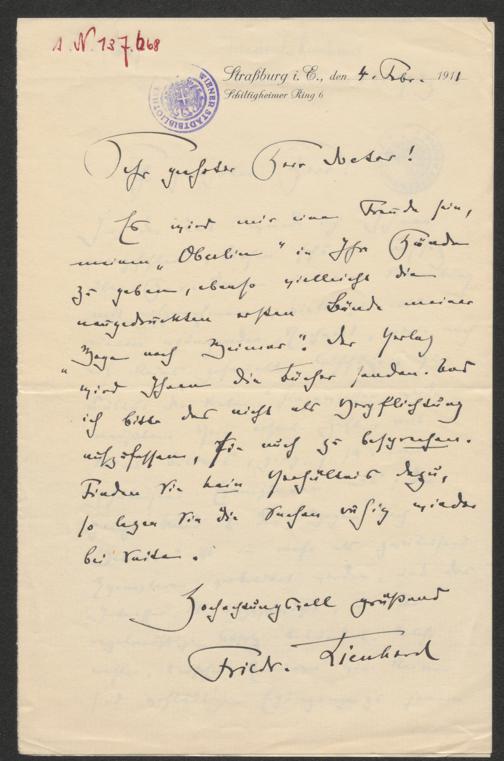 I. N. 137.268
WIENER STADTBIBLIOTHEK
Straßburg i. E., den 4. Febr. 1911
Schiltigheimer Ring 6
Sehr geehrter Herr Doctor!
Es wird mir eine Freude sein,
meinen „Oberlin" in Ihre Hände
zu geben, ebenso vielleicht die
neugedruckten ersten Bände meiner
„Wege nach Weimar". Der Verlag
wird Ihnen die Bücher senden. Nur
ich bitte das nicht als Verpflichtung
aufzufassen, sie auch zu besprechen.
Finden Sie kein Verhältnis dazu,
so legen Sie die Sachen ruhig wieder
bei Seite.
Hochachtungsvoll grüßend
Friedr. Lienhard